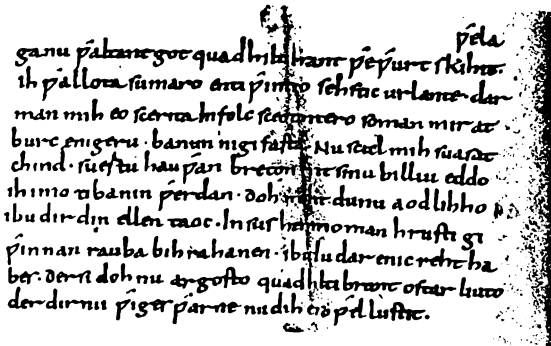 ƿela
ganu ƿaltant got quad hiltibrant ƿeƿurt skihit.
ih ƿallota sumaro enti ƿintro sehstic urlante. dar
man mih eo scerita In folc sceotantero so man mir at
burc enigeru. banun ni gifasta. Nu scal mih suasat
chind. suertu hauƿan breton mit sinu billiu eddo
ih imo ti banin ƿerdan. doh maht du nu aodlihho
ibu dir din ellen taoc. In sus heremo man hrusti gi
ƿinnan rauba bihrahanen. ibu du dar enic reht ha
bes. der si doh nu argosto quad hiltibrant ostar liuto
der dir nu ƿiges ƿarne nu dih es so ƿel lustit.